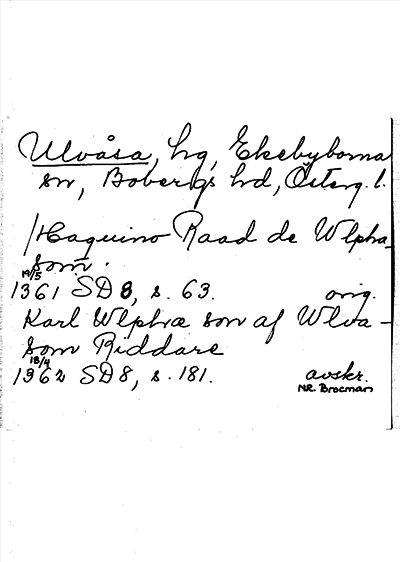 Ulvåsa, hg, Ekebyborna
sn, Bobergs hd, Österg. l.
/Haquino Raad de Wlpha
som.
19/5
1361 SD 8, s. 63. orig.
Karl Wlpha son af Wlva-
som Riddare
18/4
1362 SD 8, s. 181. avskr.
NR. Brocman